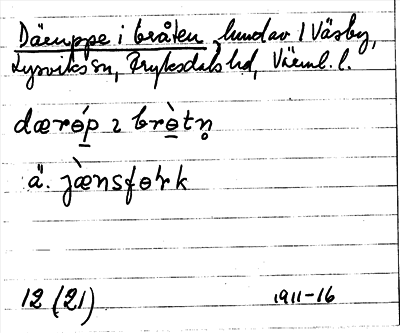 Däruppe i bråten, lundav 1 Väsby,
Lysviks sn, Fryksdals hd, Värml. l.
dærɵ́p ɩ brɵ̀tn̥
ä. jæ̀nsfɵrk
12 (21) 1911-16